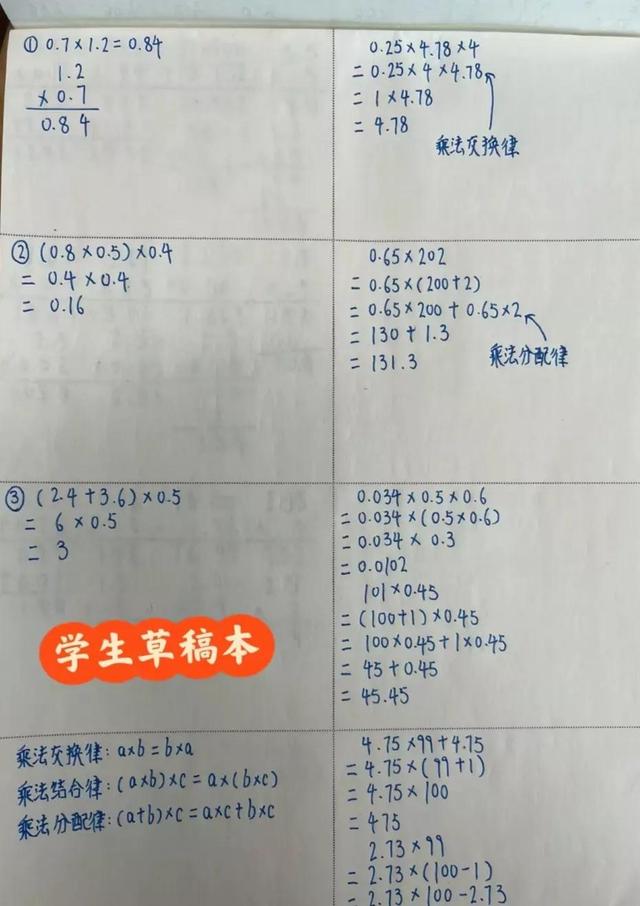 ① 0.7×1.2=0.84
1.2
×0.7
0.84
0.25×4.78×4
=0.25×4×4.78
=1×4.78
=4.78
乘法交换律
② (0.8×0.5)×0.4
= 0.4×0.4
= 0.16
0.65×202
=0.65×(200+2)
=0.65×200+0.65×2
=130+1.3
=131.3
乘法分配律
③ (2.4+3.6)×0.5
= 6×0.5
= 3
学生草稿本
0.034×0.5×0.6
=0.034×(0.5×0.6)
=0.034×0.3
=0.0102
101×0.45
=(100+1)×0.45
=100×0.45+1×0.45
=45+0.45
=45.45
乘法交换律:a×b=b×a
乘法结合律:(a×b)×c=a×(b×c)
乘法分配律:(a+b)×c=a×c+b×c
4.75×99+4.75
=4.75×(99+1)
=4.75×100
=475
2.73×99
=2.73×(100-1)
=2.73×100-2.73